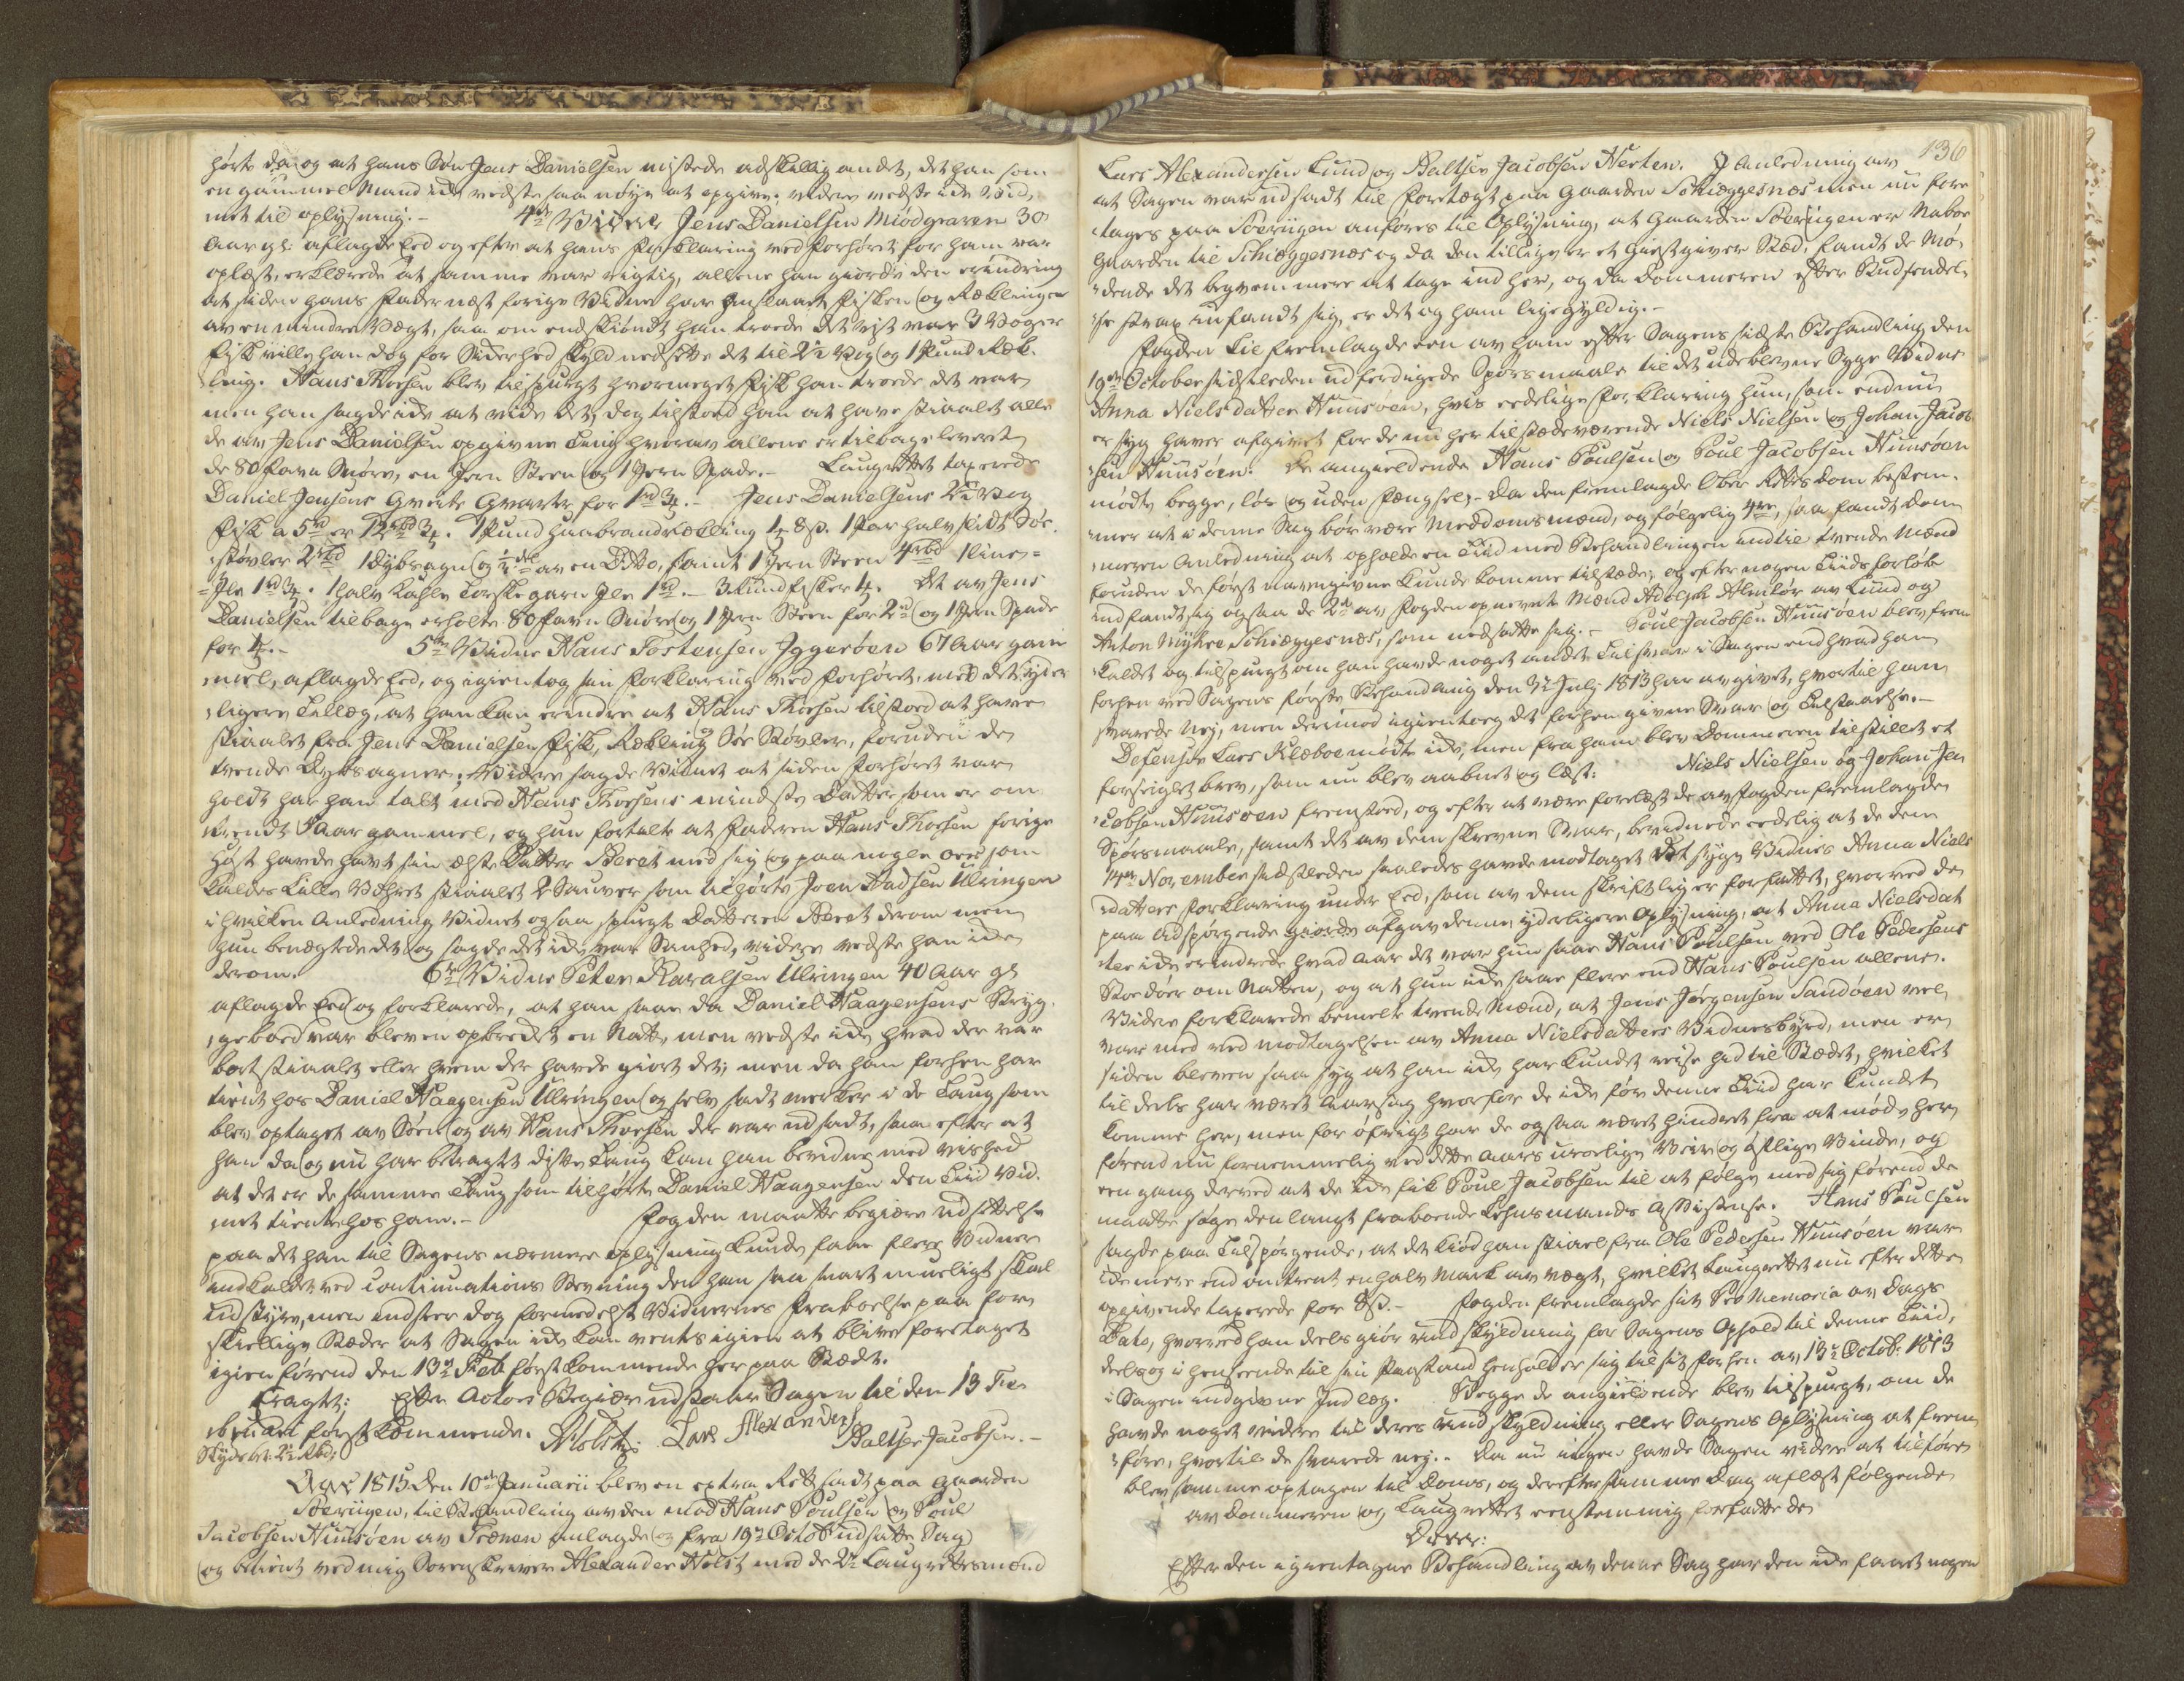 hørte da og at hans Søn Jens Danielsen mistede adskillig andet, det han som
en gammel Mand ikke vedste saa nøye at opgive; videre vedste ikke Vid¬
net til oplysning.- 4de Vidne Jens Danielsen Miødgraven 30
Aar gl: aflagde Eed og efter at hans Forklaring ved Forhøret for ham var
oplæst, erklærede at samme var rigtig, allene han giorde den erindring
at siden hans Fader næst forige Vidne har anslaaet Fisken og Reklingen
av en mindre Vægt, saa om endskiøndt han troede det vist var 3 Voger
Fisk ville han dog for Sickerhed skyld nedsette det til 2½ Vog og 1 Pund Rek¬
ling. Hans Thoesen blev tilspurgt hvormeget Fisk han troede det var
men han sagde ikke at vide det, dog tilstoed han at have stiaalet alle
de av Jens Danielsen opgivne Ting hvorav allene er tilbageleveret
de 80 Favn Snøre, en Jern Steen og 1 Jern Spade.- Laugrettet taxerede
Daniel Jensens Qveite Qvarte for 1 rd 3 ℔.- Jens Danielsens 2½ Vog
Fisk a 5 rd er 12 rbd 3 ℔. 1 Pund Haabrandrekling 1 ℔ 8 s. 1 Par halv slidt Søe¬
støvler 2 rbd 1 Dybsagn og ½ deel av en Ditto, samt 1 Jern Steen 4 rbd 1 line=
=Ile 1 rd 3 ℔. 1 halv Kahle Torskegarn Ile 1 rd.- 3 Rundfisker ℔. Det av Jens
Danielsen tilbage erholte 80 Favn Snøre og 1 Jern Steen for 2 rd og 1 Jern Spade
for ℔.- 5te Vidne Hans Tostensen Iggerøen 67 Aar gam
mel, aflagde Eed, og igientog sin Forklaring ved Forhøret, med det yder
ligere Tillæg, at han kan erindre at Hans Thoesen tilstoed at have
stiaalet fra Jens Danielsen Fisk, Rekling Søe Støvler, foruden de
tvende Dybsagner. Videre sagde Vidnet at siden Forhøret var
holdt har han talt med Hans Thoesens mindste Datter som er om
trendt Aar gammel, og hun fortalte at Faderen Hans Thoesen forige
Høst havde havt sin elste Datter Beret med sig og paa nogle Øer som
kaldes Lille stiaalet 2 Sauver som tilhørte Joen Aadsen Ulvingen
i hvilken Anledning Vidnet ogsaa spurgte Datteren Beret derom men
hun benegtede det og sagde det ikke var Sanhed, videre vedste han ikke
derom. 6te Vidne Peter Karalsen Ulvingen 40 Aar gl
aflagde Eed og forklarede, at han saae da Daniel Haagensens Brygge¬
geboed var bleven opbrudt en Natte, men vedste ikke hvad der var
bort stiaalet eller hvem der havde giort det; men da han forhen har
tient hos Daniel Haagensen Ulvingen og selv sadt merker i de Taug som
blev optaget av Søen og av Hans Thoesen der var udsadt, saa efter at
han da og nu har betragtet disse Taug kan han bevidne med vished
at det er de samme Taug som tilhørte Daniel Haagensen den Tiid Vid¬
net tiente hos ham.- Fogden maatte begiere udsettelse
paa det han til Sagens nærmere oplysning kunde faae flere Vidner
indkaldet ved continuations Stevning den han saa snart mueligt skal
udstyre, men indseer dog formedelst Vidnernes Fraboelse paa for
skiellige Stæder at Sagen ikke kan ventes igien at blive foretaget
igien førend den 13de Feb førstkommende her paa Stædet.
Eragtet: Efter Actors Begiær udstaaer Sagen til den 13 Fe
bruari førstkommende. AHolst Lars Alexanders Baltser Jacobsen.-
Skydsen: 2½ Rbd;
Aar 1815 den 10de Januarii blev en extra Rett sadt paa Gaarden
Søeriigen, til Behandling av den mod Hans Poulsen og Poul
Jacobsen Huusøen av Trænen anlagde og fra 19de Octob udsatte Sag
og betient ved mig Sorenskriver Alexander Holst med de 2de Laugrettesmænd
136
Lars Alexandersen Lund og Baltser Jacobsen Nerten. I Anledning av
at Sagen var udsadt til Foretægt paa Gaarden Schieggesnes men nu fore
tages paa Søeriigen anføres til Oplysning, at Gaarden Søeriigen er Naboe
Gaarden til Schieggesnes og da den tillige er et Giestgiver Stæd, fandt de Mø¬
dende det beqvemmere at tage ind her, og da Dommeren efter Budsendel¬
se strax indfandt sig, er det og ham ligegyldig.-
Fogden Lie fremlagde een av ham efter Sagens sidste Behandling den
19de October sidstleden udferdigede Spørsmaale til det udeblevne Syge Vidne
Anna Nielsdatter Huusøen, hvis eedelige Forklaring hun, som endnu
er syg haver afgivet for de nu her tilstædeværende Niels Nielsen og Johan Jacob
sen Huusøen. De angieldende Hans Poulsen og Poul Jacobsen Huusøen
mødte begge, løs og uden Fengsel;- Da den fremlagde Ober Retts dom bestem¬
mer at i denne Sag bør være Meddomsmænd, og følgelig 4re, saa fandt Dom
meren Anledning at opholde en Tiid med Behandlingen indtil tvende Mænd
foruden de først navngivne kunde komme tilstæde, og efter nogen Tiids forløb
indfandt sig ogsaa de 2de av Fogden opnevnte Mænd Adolph Almlør av Lund og
Anton Nyhre Schieggesnes, som nedsatte sig.- Poul Jacobsen Huusøen blev frem
kaldet og tilspurgt om han havde noget andet Tilsvar i Sagen end hvad han
forhen ved Sagens første Behandling den 3de July 1813 har avgivet, hvortil han
svarede Nej, men derimod igientog det forhen givne Svar og Tilstaaelse.-
Defensor Lars Klæboe mødte ikke, men fra ham blev Dommeren tilstillet et
forseiglet brev, som nu blev aabnet og læst: Niels Nielsen og Johan Ja
cobsen Huusøen fremstoed, og efter at være forelæst de av Fogden fremlagde
Spørsmaale, samt det av dem skrevne Svar, bevidnede eedelig at de den
14de November sidstleden saaledes havde modtaget det syge Vidnes Anna Niels
datters Forklaring under Eed, som av dem skriftlig er forfattet, hvorved de
paa Adspørgende giorde afgav denne yderligere Oplysning, at Anna Nielsdat
ter ikke erindrede hvad Aar det var hun saae Hans Poulsen ved Ole Pedersens
Boedør om Natten, og at hun ikke saae flere end Hans Poulsen allene.
Videre forklarede bemelte tvende Mænd, at Jens Jørgensen Sandøen vel
var med ved modtagelsen av Anna Nielsdatters Vidnesbyrd, men er
siden bleven saa syg at han ikke har kundet reise hid til Stædet, hvilket
tildels har været aarsag hvorfor de ikke før denne Tiid har kundet
komme her, men for øfrigt har de ogsaa været hindret fra at møde her
førend nu fornemmelig ved dette Aars urolige Veir og østlige Vinde, og
een gang derved at de ikke fik Poul Jacobsen til at følge med sig førend de
maatte søge den langt fraboende Lehnsmands Assistense. Hans Poulsen
sagde paa Tilspørgende, at det Kiød han stiael fra Ole Pedersen Huusøen var
ikke mere end omtrent en halv Mark av vægt, hvilket Laugrettet nu efter dette
opgivende taxerede for 8 s.- Fogden fremlagde sit Pro Memoria av Dags
Dato, hvorved han deels giør undskyldning for Sagens Ophold til denne Tiid,
deels og i henseende til sin Paastand henholder sig til sit forhen av 13de Octob: 1813
i Sagen indgivne Indlæg. Begge de angieldende blev tilspurgt, om de
havde noget videre til deres undskyldning eller Sagens Oplysning at frem
føre, hvortil de svarede nej.- Da nu ingen havde Sagen videre at tilføre
blev samme optagen til Doms, og derefter samme Dag aflæst følgende
av Dommeren og Laugrettet eenstemmig forfattede
Dom:
Efter den igientagne Behandling av denne Sag har den ikke faaet nogen